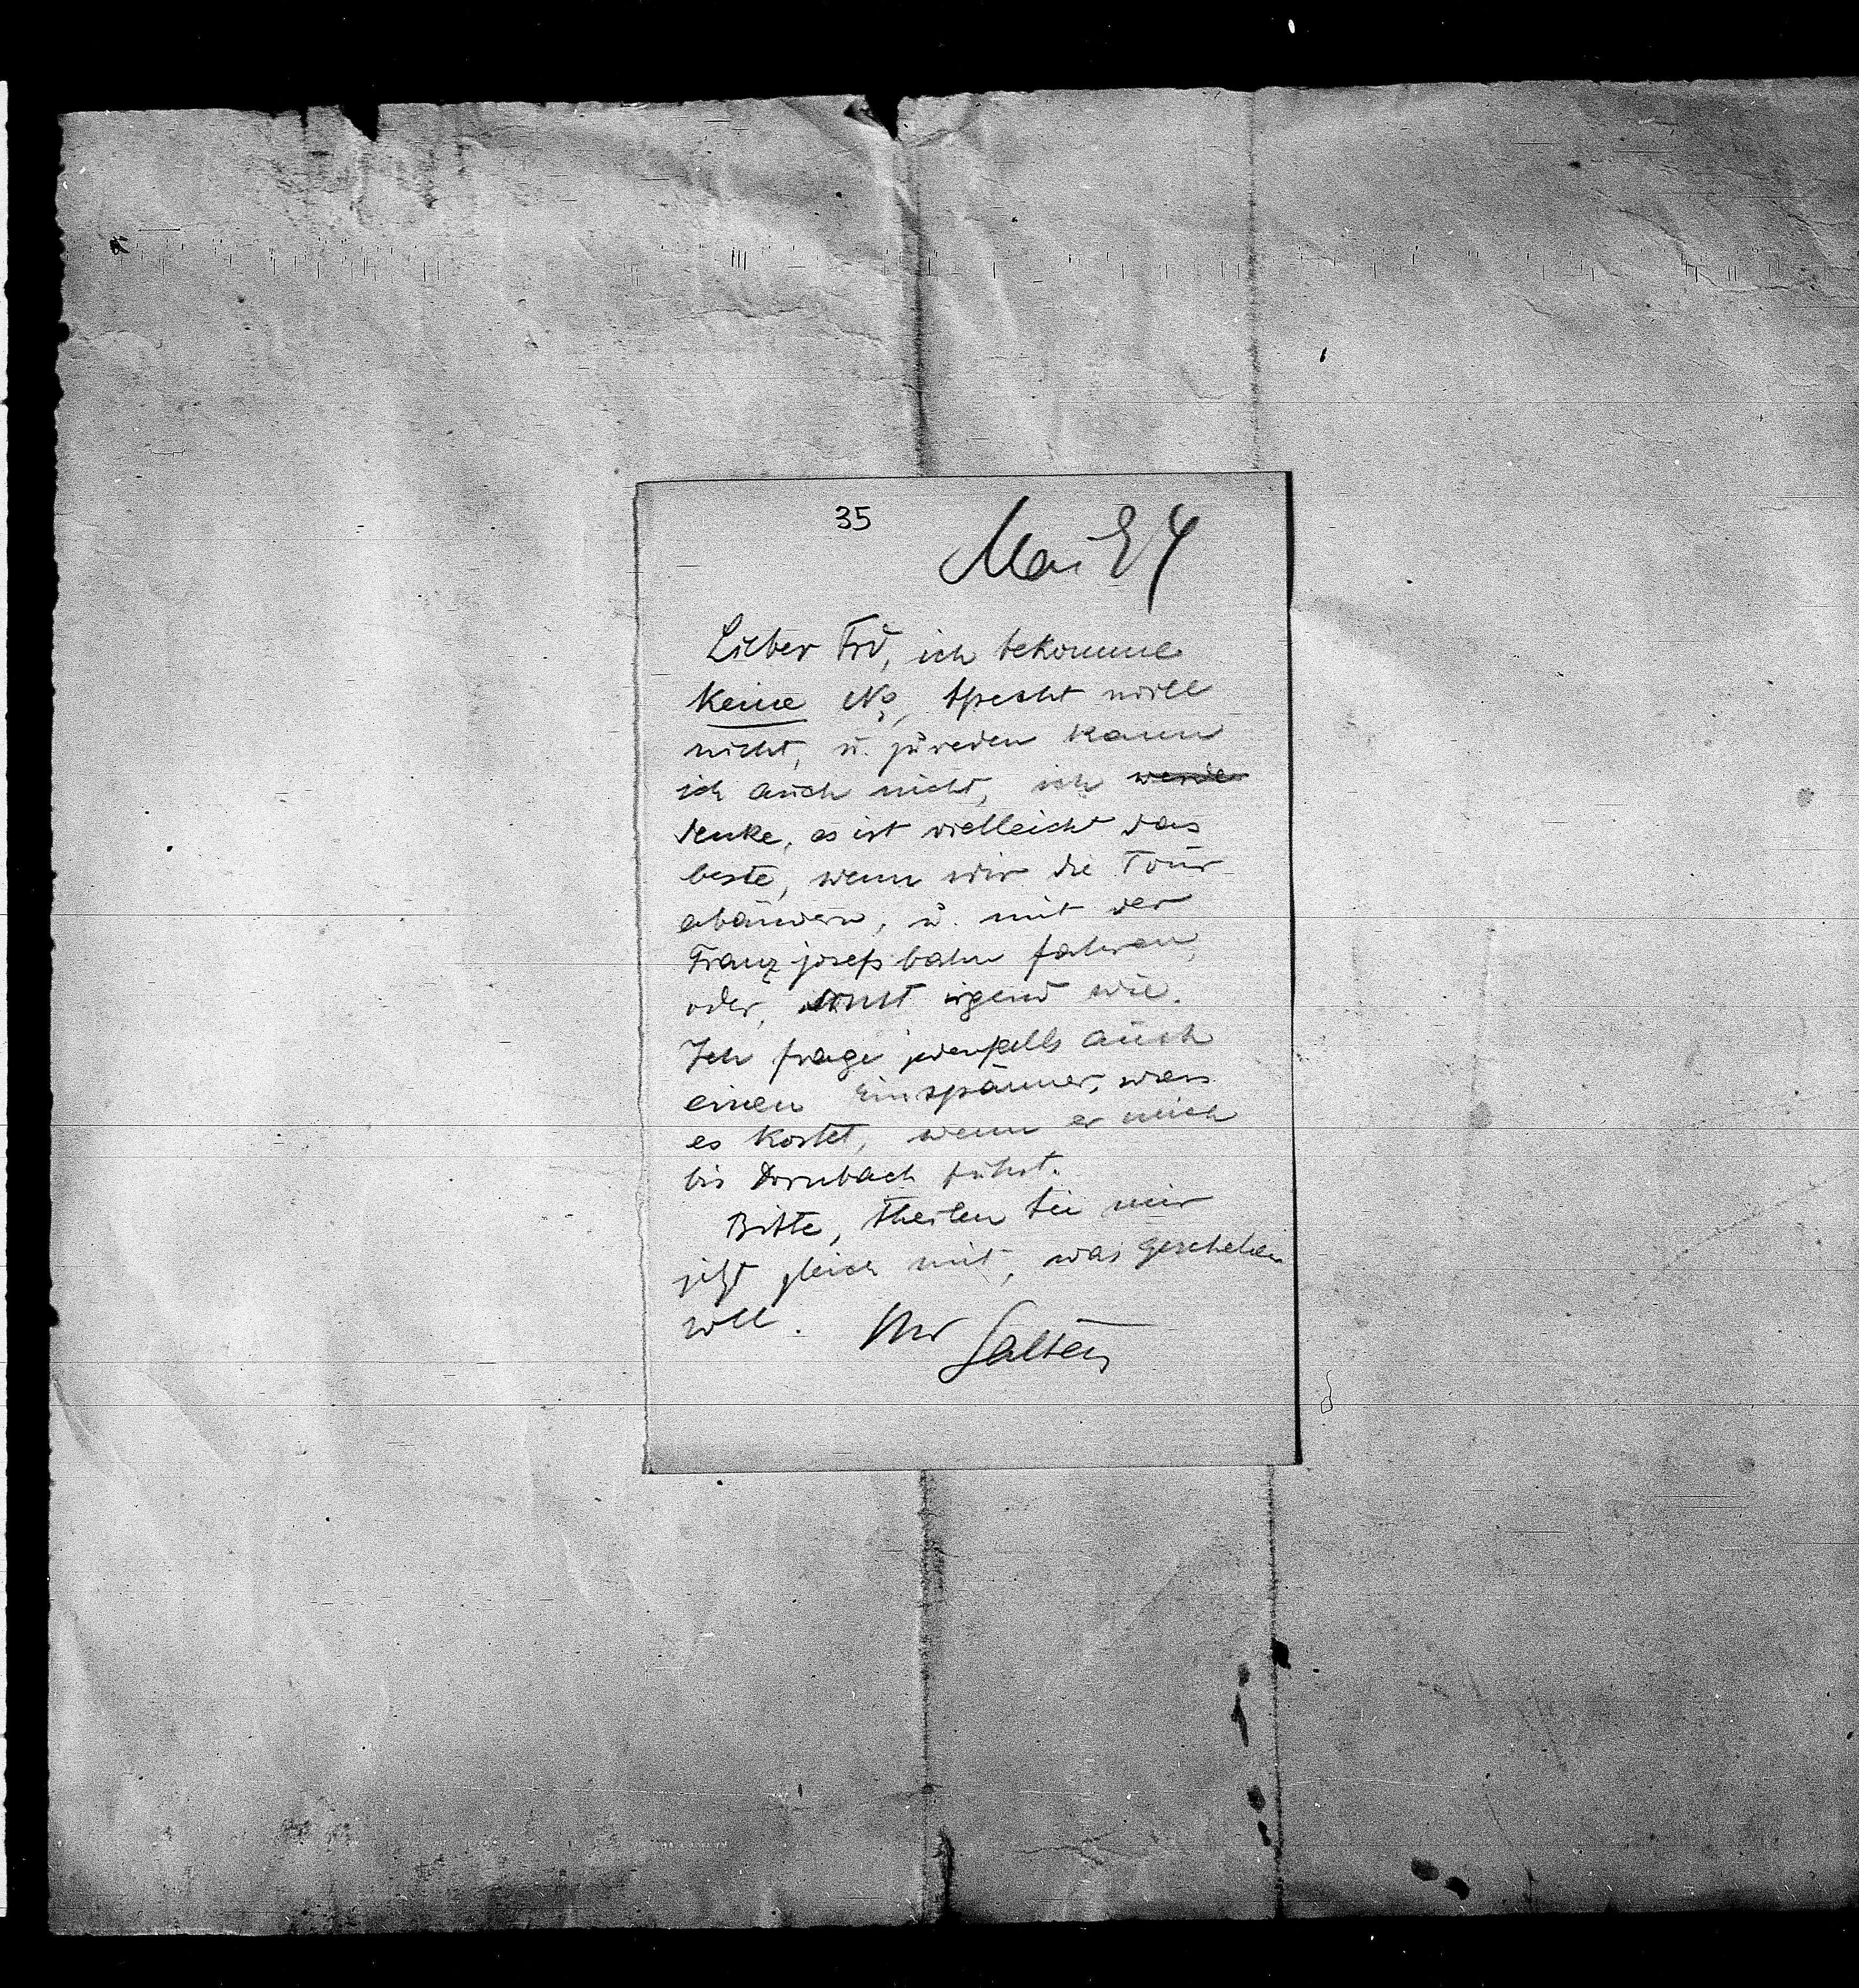 35
Mai 94
Lieber Frd, ich bekomme
keine No, Specht will
nicht, u. zureden kann
ich auch nicht, ich werde
denke, es ist vielleicht das
beste, wenn wir die Tour
abändern, u. mit der
Franz josefsbahn fahren,
oder, sonst irgend wie.
Ich frage jedenfalls auch
einen Einspänner, was
es kostet, wenn er mich
bis Dornbach führt.
Bitte, theilen Sie mir
jetzt gleich mit, was geschehen
soll. Ihr
Salten